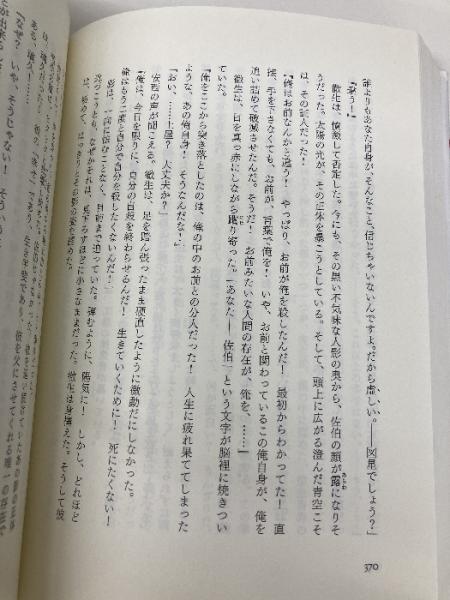 誰よりもあなた自身が、そんなこと、信じちゃいないんですよ。だから虚しい。――図星でしょう？」
「違う！」
徹生は、憤然として否定した。今にも、その黒い不気味な人影の奥から、佐伯の顔が露になりそ
うだった。太陽の光が、その正体を暴こうとしている。そして、頭上に広がる澄んだ青空こそ
は、その証人だった！
「俺はお前なんかと違う！　やっぱり、お前が俺を殺したんだ！　最初からわかってた！　直
接、手を下さなくても、お前が、言葉で俺を！　いや、お前と関わっているこの俺自身が、俺を
追い詰めて破滅させたんだ。そうだ！　お前みたいな人間の存在が、俺を、……」
徹生は、目を真っ赤にしながら躙り寄った。「あなた――佐伯」という文字が脳裡に焼きつい
ていた。
「俺をここから突き落としたのは、俺の中のお前との分人だった！　人生に疲れ果ててしまった
ような、あの俺自身！　そうなんだな？」
「おい、………土屋？　大丈夫か？」
安西の声が聞こえる。徹生は、足を踏ん張ったまま硬直したように微動だにしなかった。
「俺は、今日を限りに、自分の自殺を終わらせるんだ！　生きていくために！　死にたくない！
俺はもう二度と自分で自分を殺したくないんだ！」
影は、一向に怯むことなく、目前まで迫っていた。弾むように、陽気に！　しかし、どれほど
近づこうとも、なぜかそれは、見下ろすほどに小さなままだった。徹生は身構えた。そうして彼
は、初めて、はっきりとその影の姿を認めた。
370
「なぜ？　いや、そうじゃない！　そういう